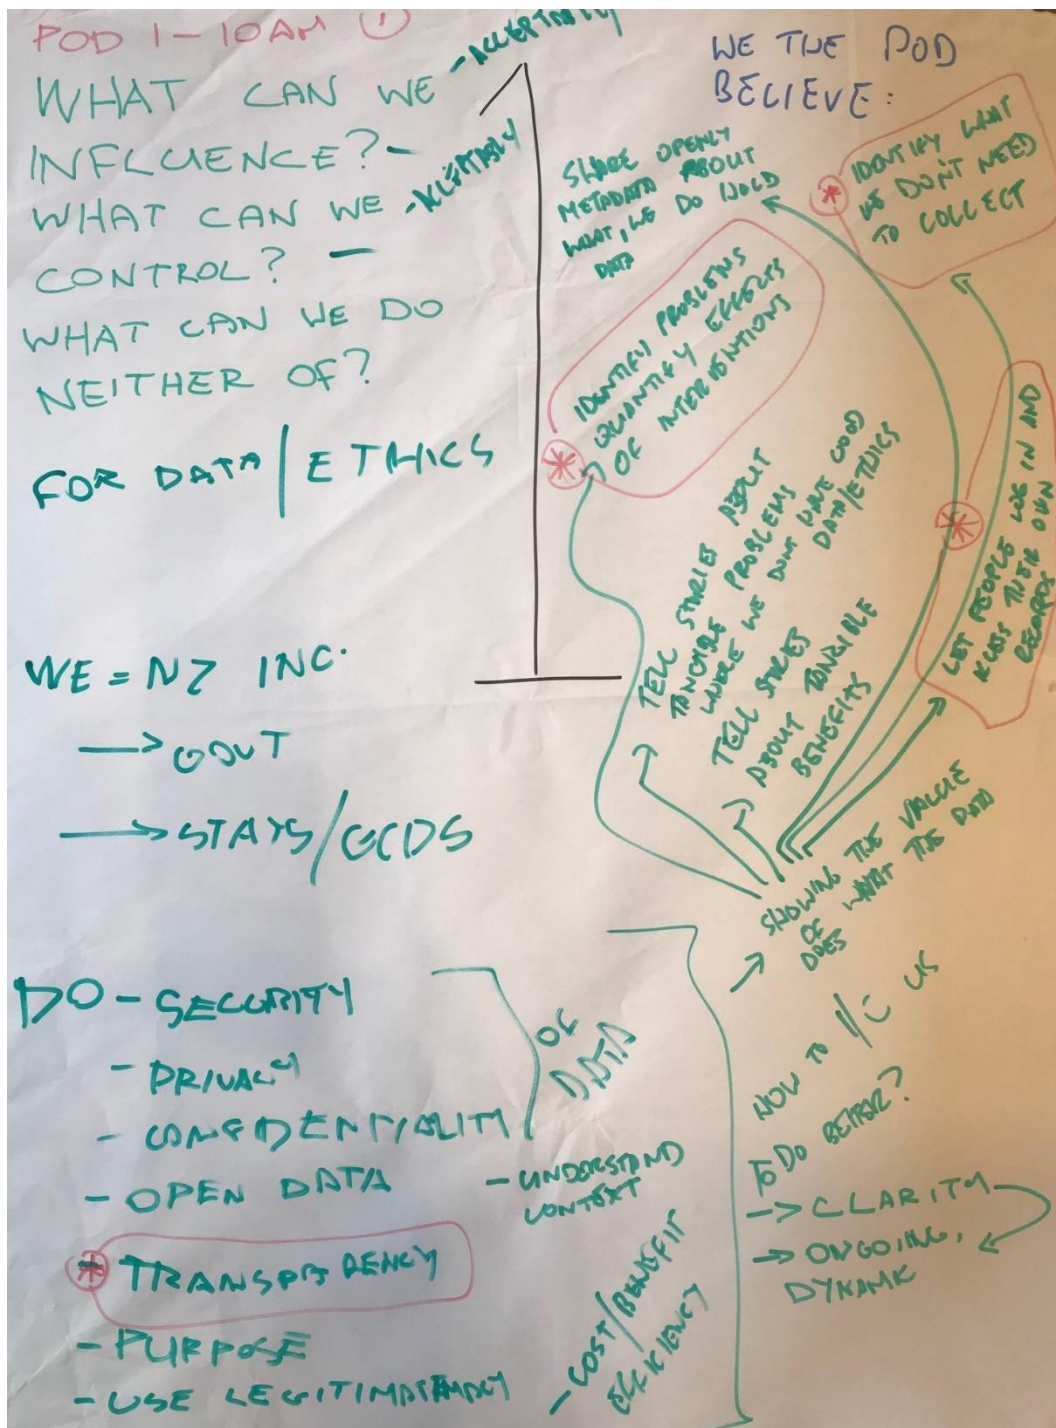 POD 1 - 10AM ①
WHAT CAN WE
INFLUENCE? -
WHAT CAN WE
CONTROL? -
WHAT CAN WE DO
NEITHER OF?
FOR DATA/ETHICS
WE = NZ INC.
→ GOVT
→ STATS/GCDS
DO - SECURITY
- PRIVACY
- CONFIDENTIALITY
OF
DATA
- OPEN DATA
- UNDERSTAND
CONTEXT
* TRANSPARENCY
- PURPOSE
- USE
- COST/BENEFIT
EFFICIENCY
WE THE POD
BELIEVE:
SHARE OPENLY
METADATA ABOUT
WHAT, WE DO HOLD
DATA
* IDENTIFY WHAT
WE DON'T NEED
TO COLLECT
IDENTIFY PROBLEMS
* QUANTIFY EFFECTS
OF INTERVENTIONS
TELL STORIES ABOUT
TANGIBLE PROBLEMS
WHERE WE DONT HAVE GOOD
DATA/ETHICS
TELL STORIES
ABOUT TANGIBLE
BENEFITS
*
LET PEOPLE LOG IN AND
ACCESS THEIR OWN
RECORDS
→ SHOWING THE VALUE
OF WHAT THE DATA
DOES
HOW TO I/C US
TO DO BETTER?
→ CLARITY
→ ONGOING,
DYNAMIC